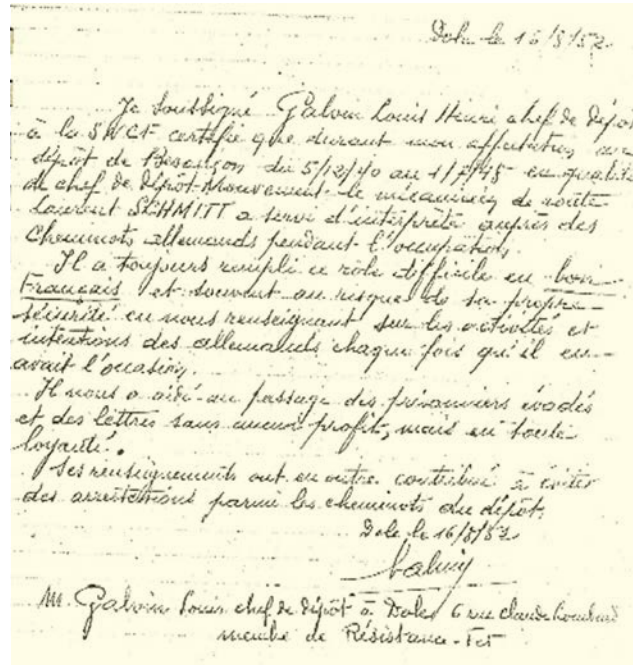 Dole le 16/8/52
Je soussigné Galvin Louis Henri chef de Dépôt
à la SNCF certifie que durant mon affectation au
dépôt de Besançon du 5/12/40 au 1/7/45 en qualité
de chef de Dépôt-Mouvement le mécanicien de route
Laurent SCHMITT a servi d'interprète auprès des
Cheminots allemands pendant l'occupation,
Il a toujours rempli ce rôle difficile en bon
Français et souvent au risque de sa propre
sécurité en nous renseignant sur les activités et
intentions des allemands chaque fois qu'il en
avait l'occasion.
Il nous a aidé au passage des prisonniers évadés
et des lettres sans aucun profit, mais en toute
loyauté.
Ses renseignements ont en outre contribué à éviter
des arrestations parmi les cheminots du dépôt.
Dole le 16/8/52
Galvin
M. Galvin Louis chef de dépôt à Dole 6 rue Claude
membre de Résistance-Fer